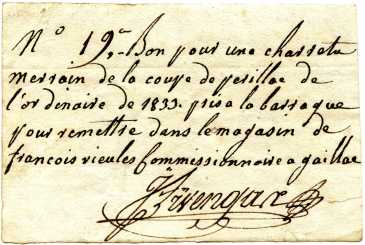 N° 19, Bon pour une charreta
merrain de la coupe de perillac de
l'ordinaire de 1833. pris a la barraque
pour remettre dans le magasin de
francois rieules Commissionnaire a gaillac